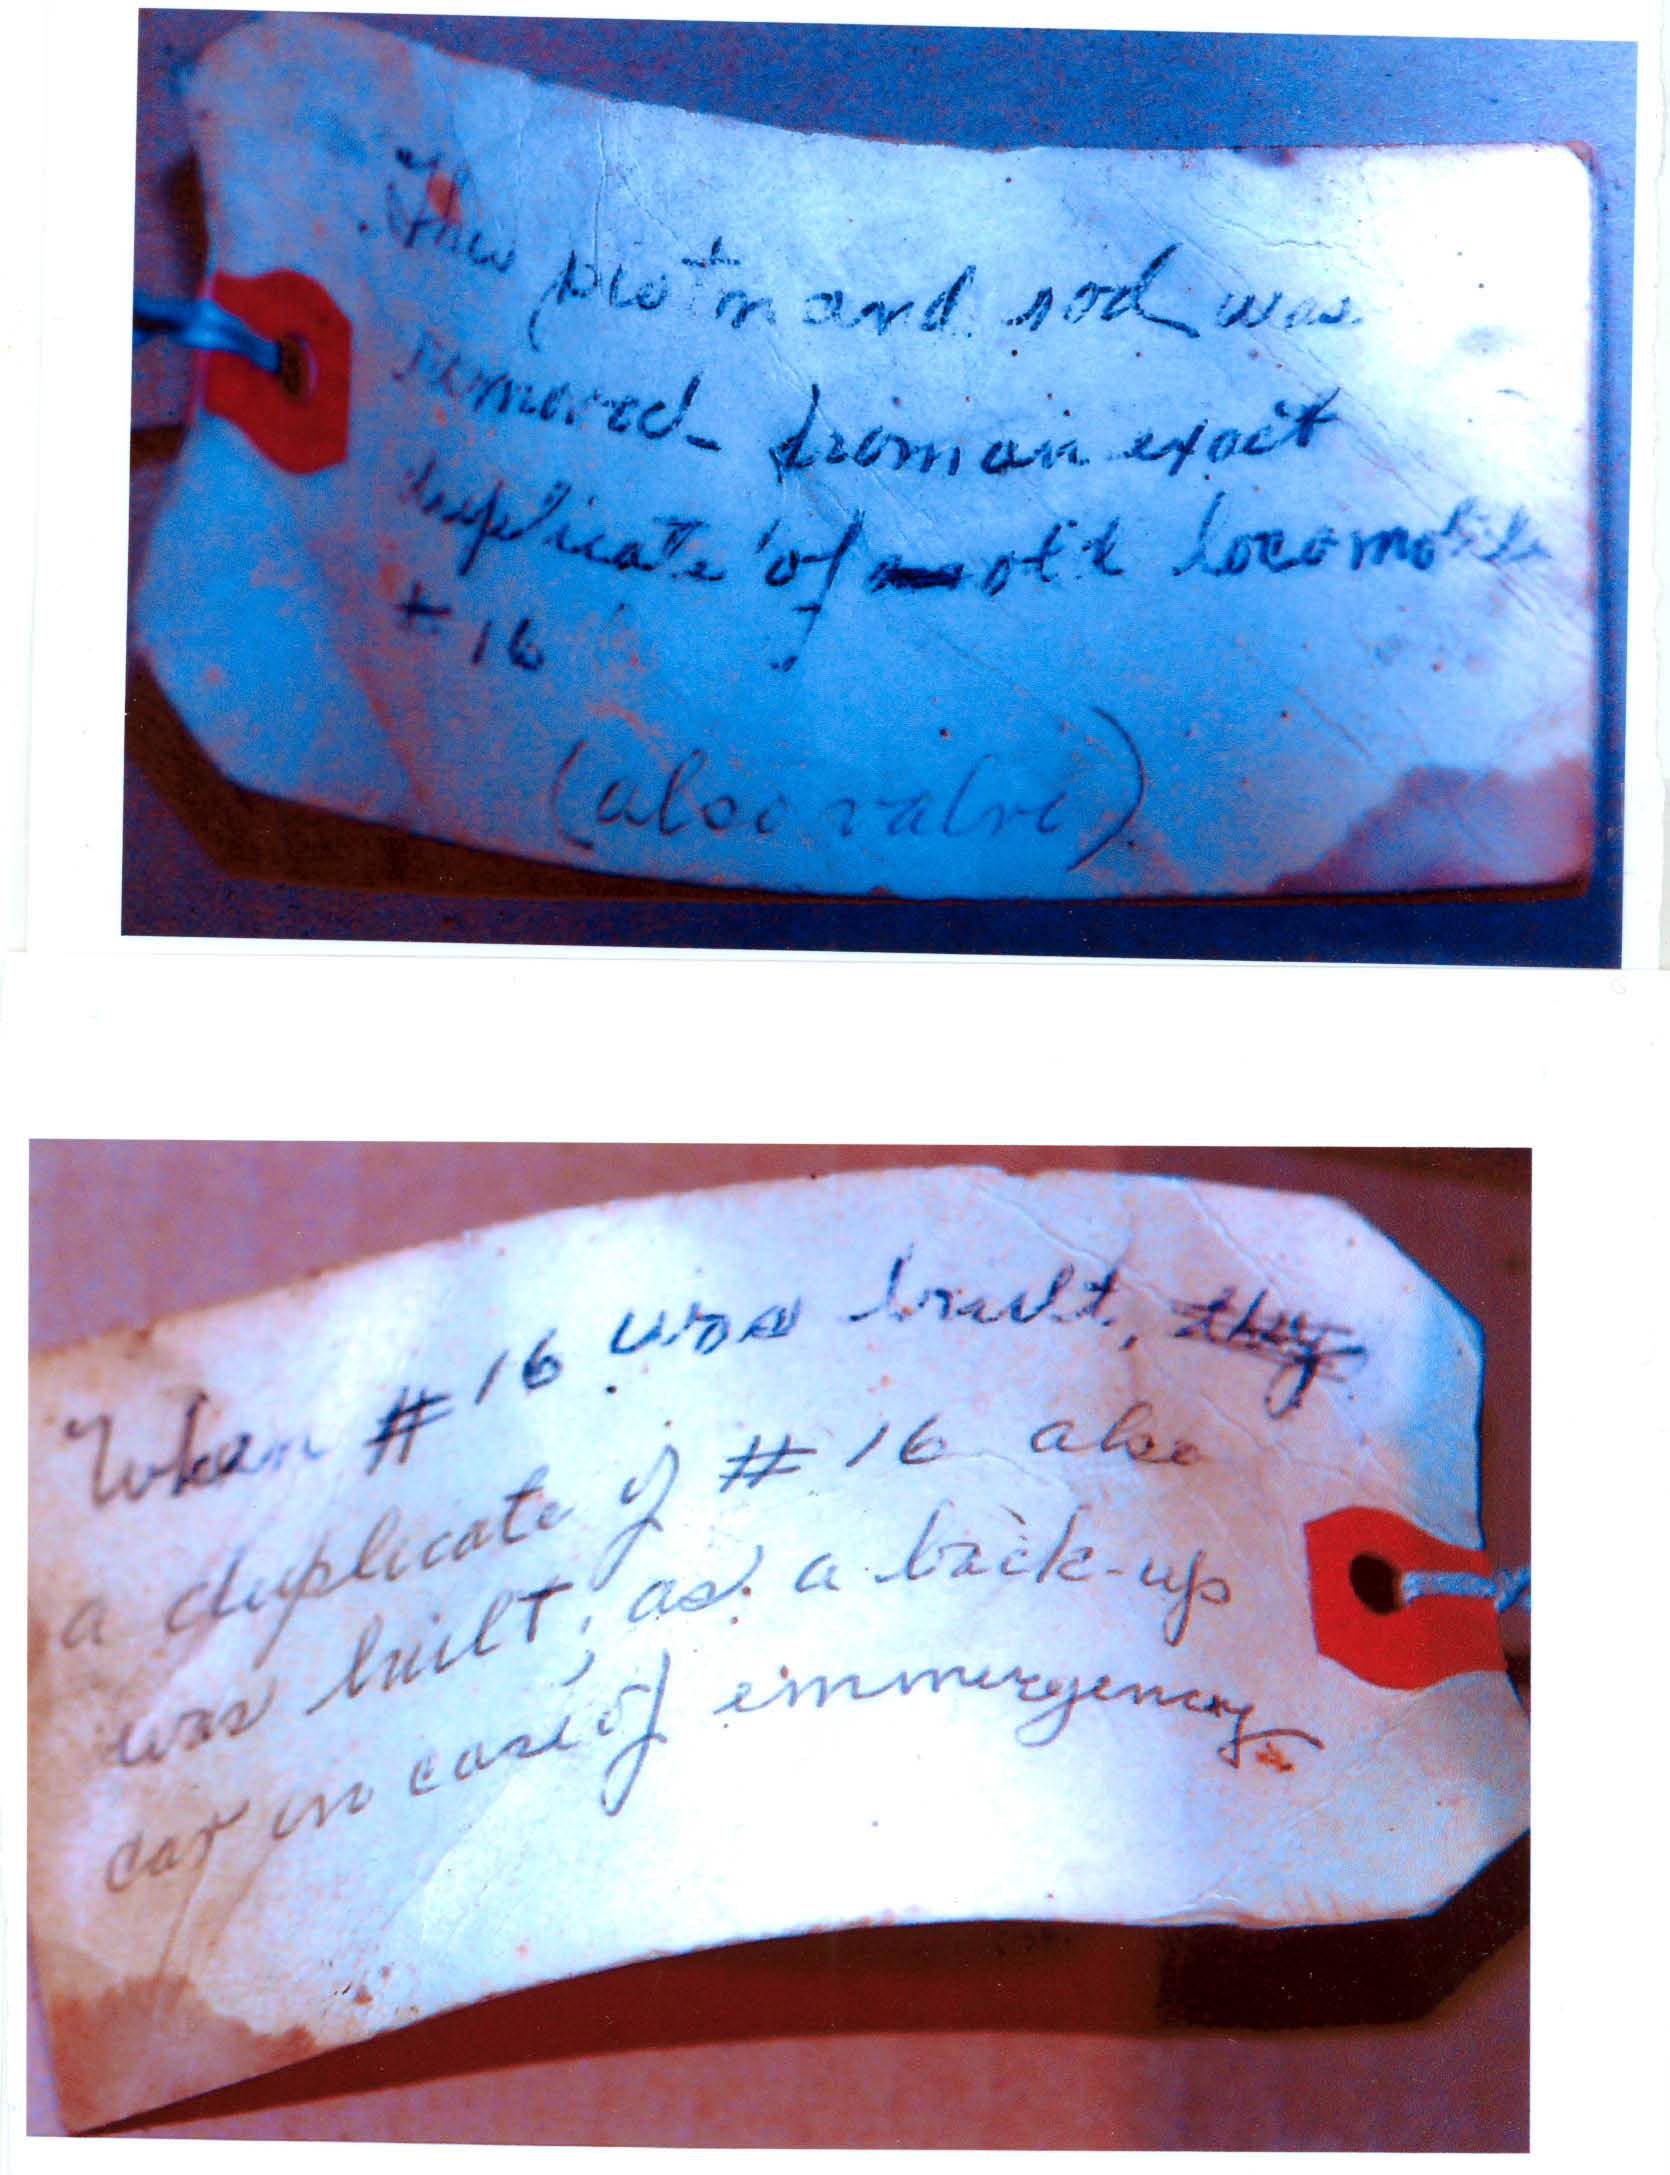 This piston and rod was
removed from an exact
duplicate of old locomobile
# 16
(also valve)
When # 16 was built, they
a duplicate of # 16 also
was built, as a back-up
car in case of emmergency